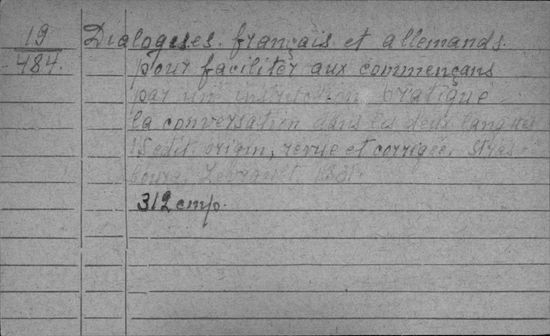 19
484.
Dialogues français et allemands
pour faciliter aux commençans
par un instruction pratique
la conversation dans les deux langues
15 edit. origin, revue et corrigée. Stras-
bourg,
312 стр.